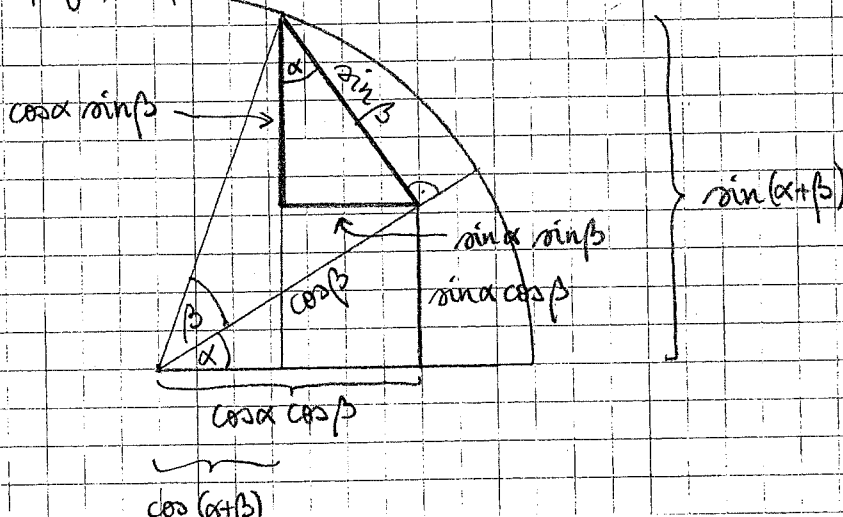 α
sin β
cosα sinβ
sin(α+β)
sinα sinβ
cosβ
sinα cosβ
β
α
cosα cosβ
cos(α+β)